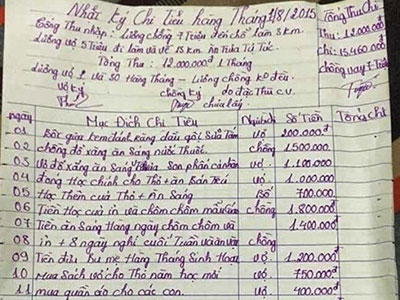 Nhật ký Chi Tiêu hàng Tháng 1/8/2015
Tổng Thu Chi
Công Thu nhập: Lương chồng 7 Triệu đến chỗ làm 3km.
Thu: 12.000.000đ
Lương vợ 5 Triệu đi làm và về 15 km. ăn Trưa Tự Túc
chi: 15.460.000
Tổng Thu: 12.000.000đ 1 Tháng
chồng vay 7 Triệu
Lương vợ và Số Hàng Tháng - Lương chồng kê đều.
vợ ký
chồng ký
do đặc Thù c.v
chưa lấy
ngày
Mục Đích Chi Tiêu
Người chi
Số Tiền
Tổng chi
01 Bột giặt kem đánh răng dầu gội Sữa Tắm vợ 200.000đ
02 chồng đổ xăng ăn Sáng nước Thuốc. chồng 1.500.000
03 Vợ đổ xăng ăn Sáng Son phấn cá nhân vợ. 1.100.000
04 đóng Học chính cho Thỏ + ăn Bán Trú vợ 1.000.000
05 Học Thêm của Thỏ + ăn Sáng Bố 700.000
06 Tiền Học của in và chôm chôm mẫu giáo chồng 1.800.000
07 Tiền ăn Sáng Hàng ngày chôm chôm và 1.400.000đ
08 in + 8 ngày nghỉ cuối Tuần và ăn vặt chồng
09 Tiền điếu Bu mẹ Hàng Tháng Sinh Hoạt vợ 1.200.000đ
10 Mua Sách vở cho Thỏ năm học mới vợ. 750.000đ
11 mua quần áo cho các con. vợ. 400.000đ